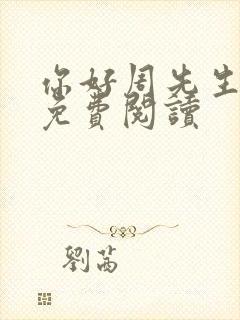 你好周先生
免費閱讀
劉茜